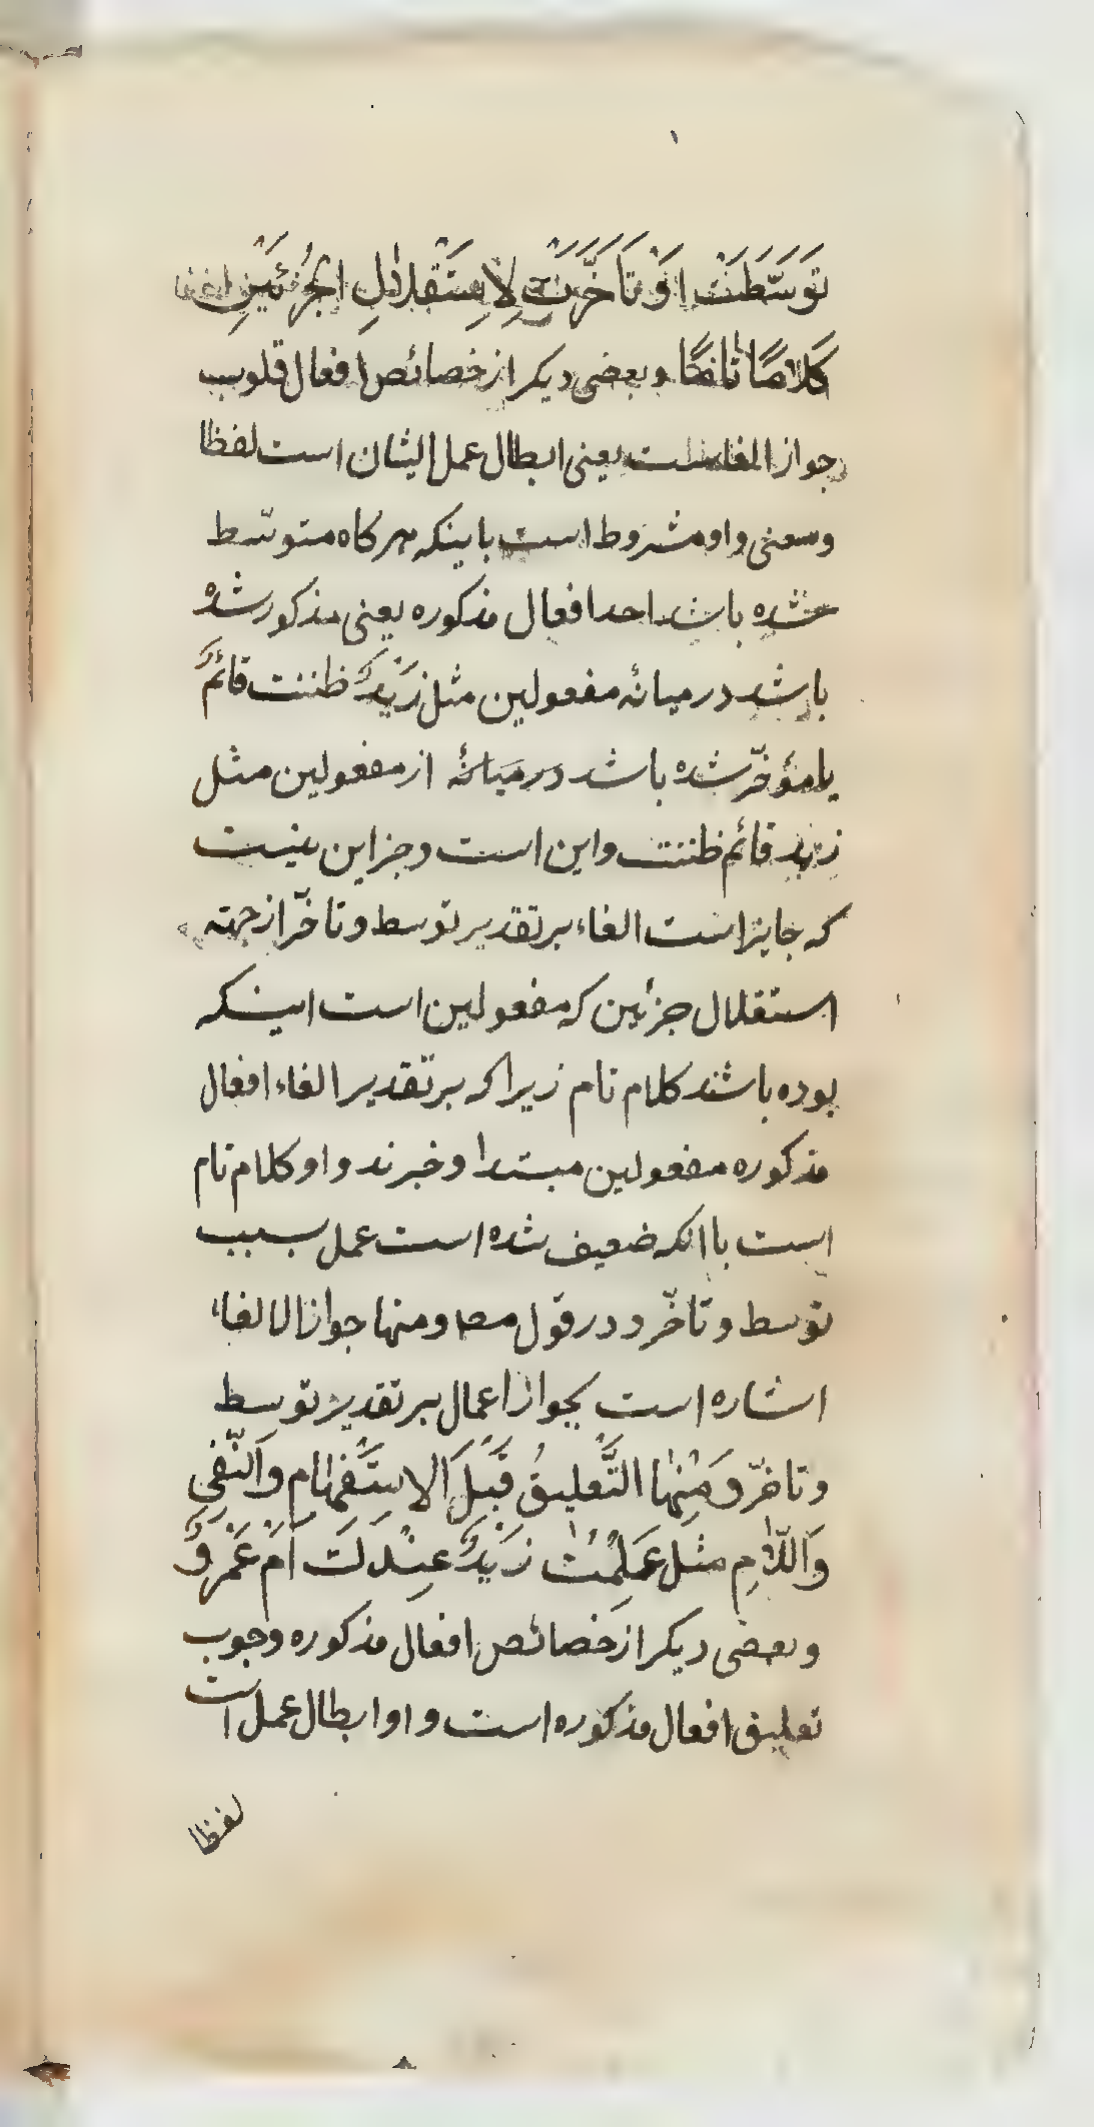 تَوَسَّطَتْ اَوْ تَاَخَّرَتْ لِاِسْتِقْلاٰلِ الْجُزْئَيْنِ
كَلٰامًا تٰامًّا وبعضی دیکر از خصائص افعال قلوب
جواز الغاست یعنی ابطال عمل ایشان است لفظا
ومعنی واو مشروط است باینکه هرکاه متوسّط
شده باشد احد افعال مذکوره یعنی مذکور شده
باشد در میانهٔ مفعولین مثل زَیْدٌ ظننت قائمٌ
یا مؤخّر شده باشد در میانهٔ از مفعولین مثل
زید قائم ظننت واین است وجز این نیست
که جایز است الغاء بر تقدیر توسط وتاخّر از جهته
استقلال جزئین که مفعولین است اینکه
بوده باشند کلام تام زیرا که بر تقدیر الغاء افعال
مذکوره مفعولین مبتدا وخبرند واو کلام تام
است با انکه ضعیف شده است عمل بسبب
توسط وتاخّر ودر قول مصـ ومنها جواز الالغاء
اشاره است بجواز اعمال بر تقدیر توسط
وتاخّر وَمِنْهٰا التَّعلیقُ قَبْلَ الاِسْتِفْهٰامِ وَالنَّفْیِ
وَاللّٰامِ مثل عَلِمْتُ زَیْدٌ عِنْدَكَ اَمْ عَمْرٌو
وبعضی دیکر از خصائص افعال مذکوره وجوب
تعلیق افعال مذکوره است واو ابطال عمل است
لفظا